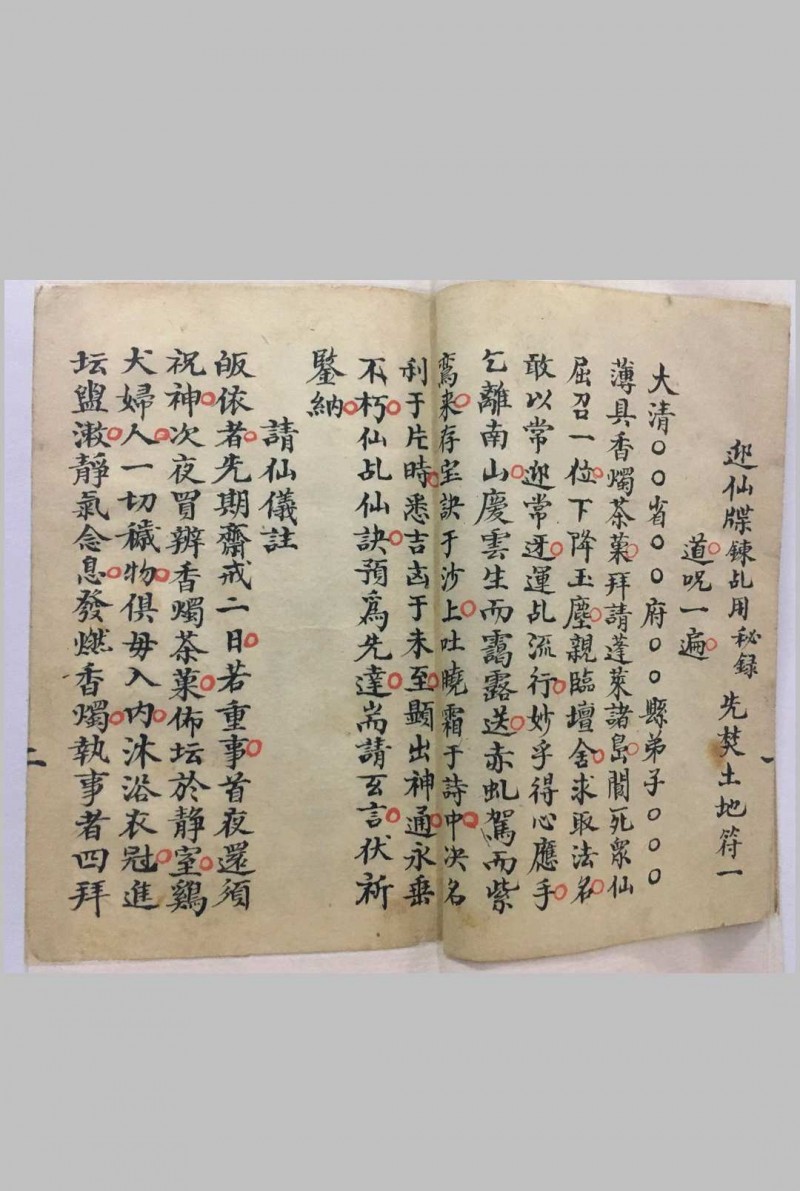 迎仙牒鍊乩用秘録 先焚土地符一
道咒一遍
大清〇〇省〇〇府〇〇縣弟子〇〇〇
薄具香燭茶菓拜請蓬萊諸島閬死衆仙
屈召一位下降玉塵親臨壇舍求取法名
敢以常迎常迓運乩流行妙乎得心應手
乞離南山慶雲生而靄露送赤虬駕而紫
鸞来存宝訣于沙上吐曉霜于詩中决名
利于片時悉吉凶于未至顯出神通永垂
不朽仙乩仙訣預爲先達耑請玄言伏祈
鑒納
請仙儀註
皈依者先期齋戒二日若重事首夜還須
祝神次夜買辦香燭茶菓佈坛於静室鷄
犬婦人一切穢物俱毋入内沐浴衣冠進
坛盥漱靜氣念息發燃香燭執事者四拜
二